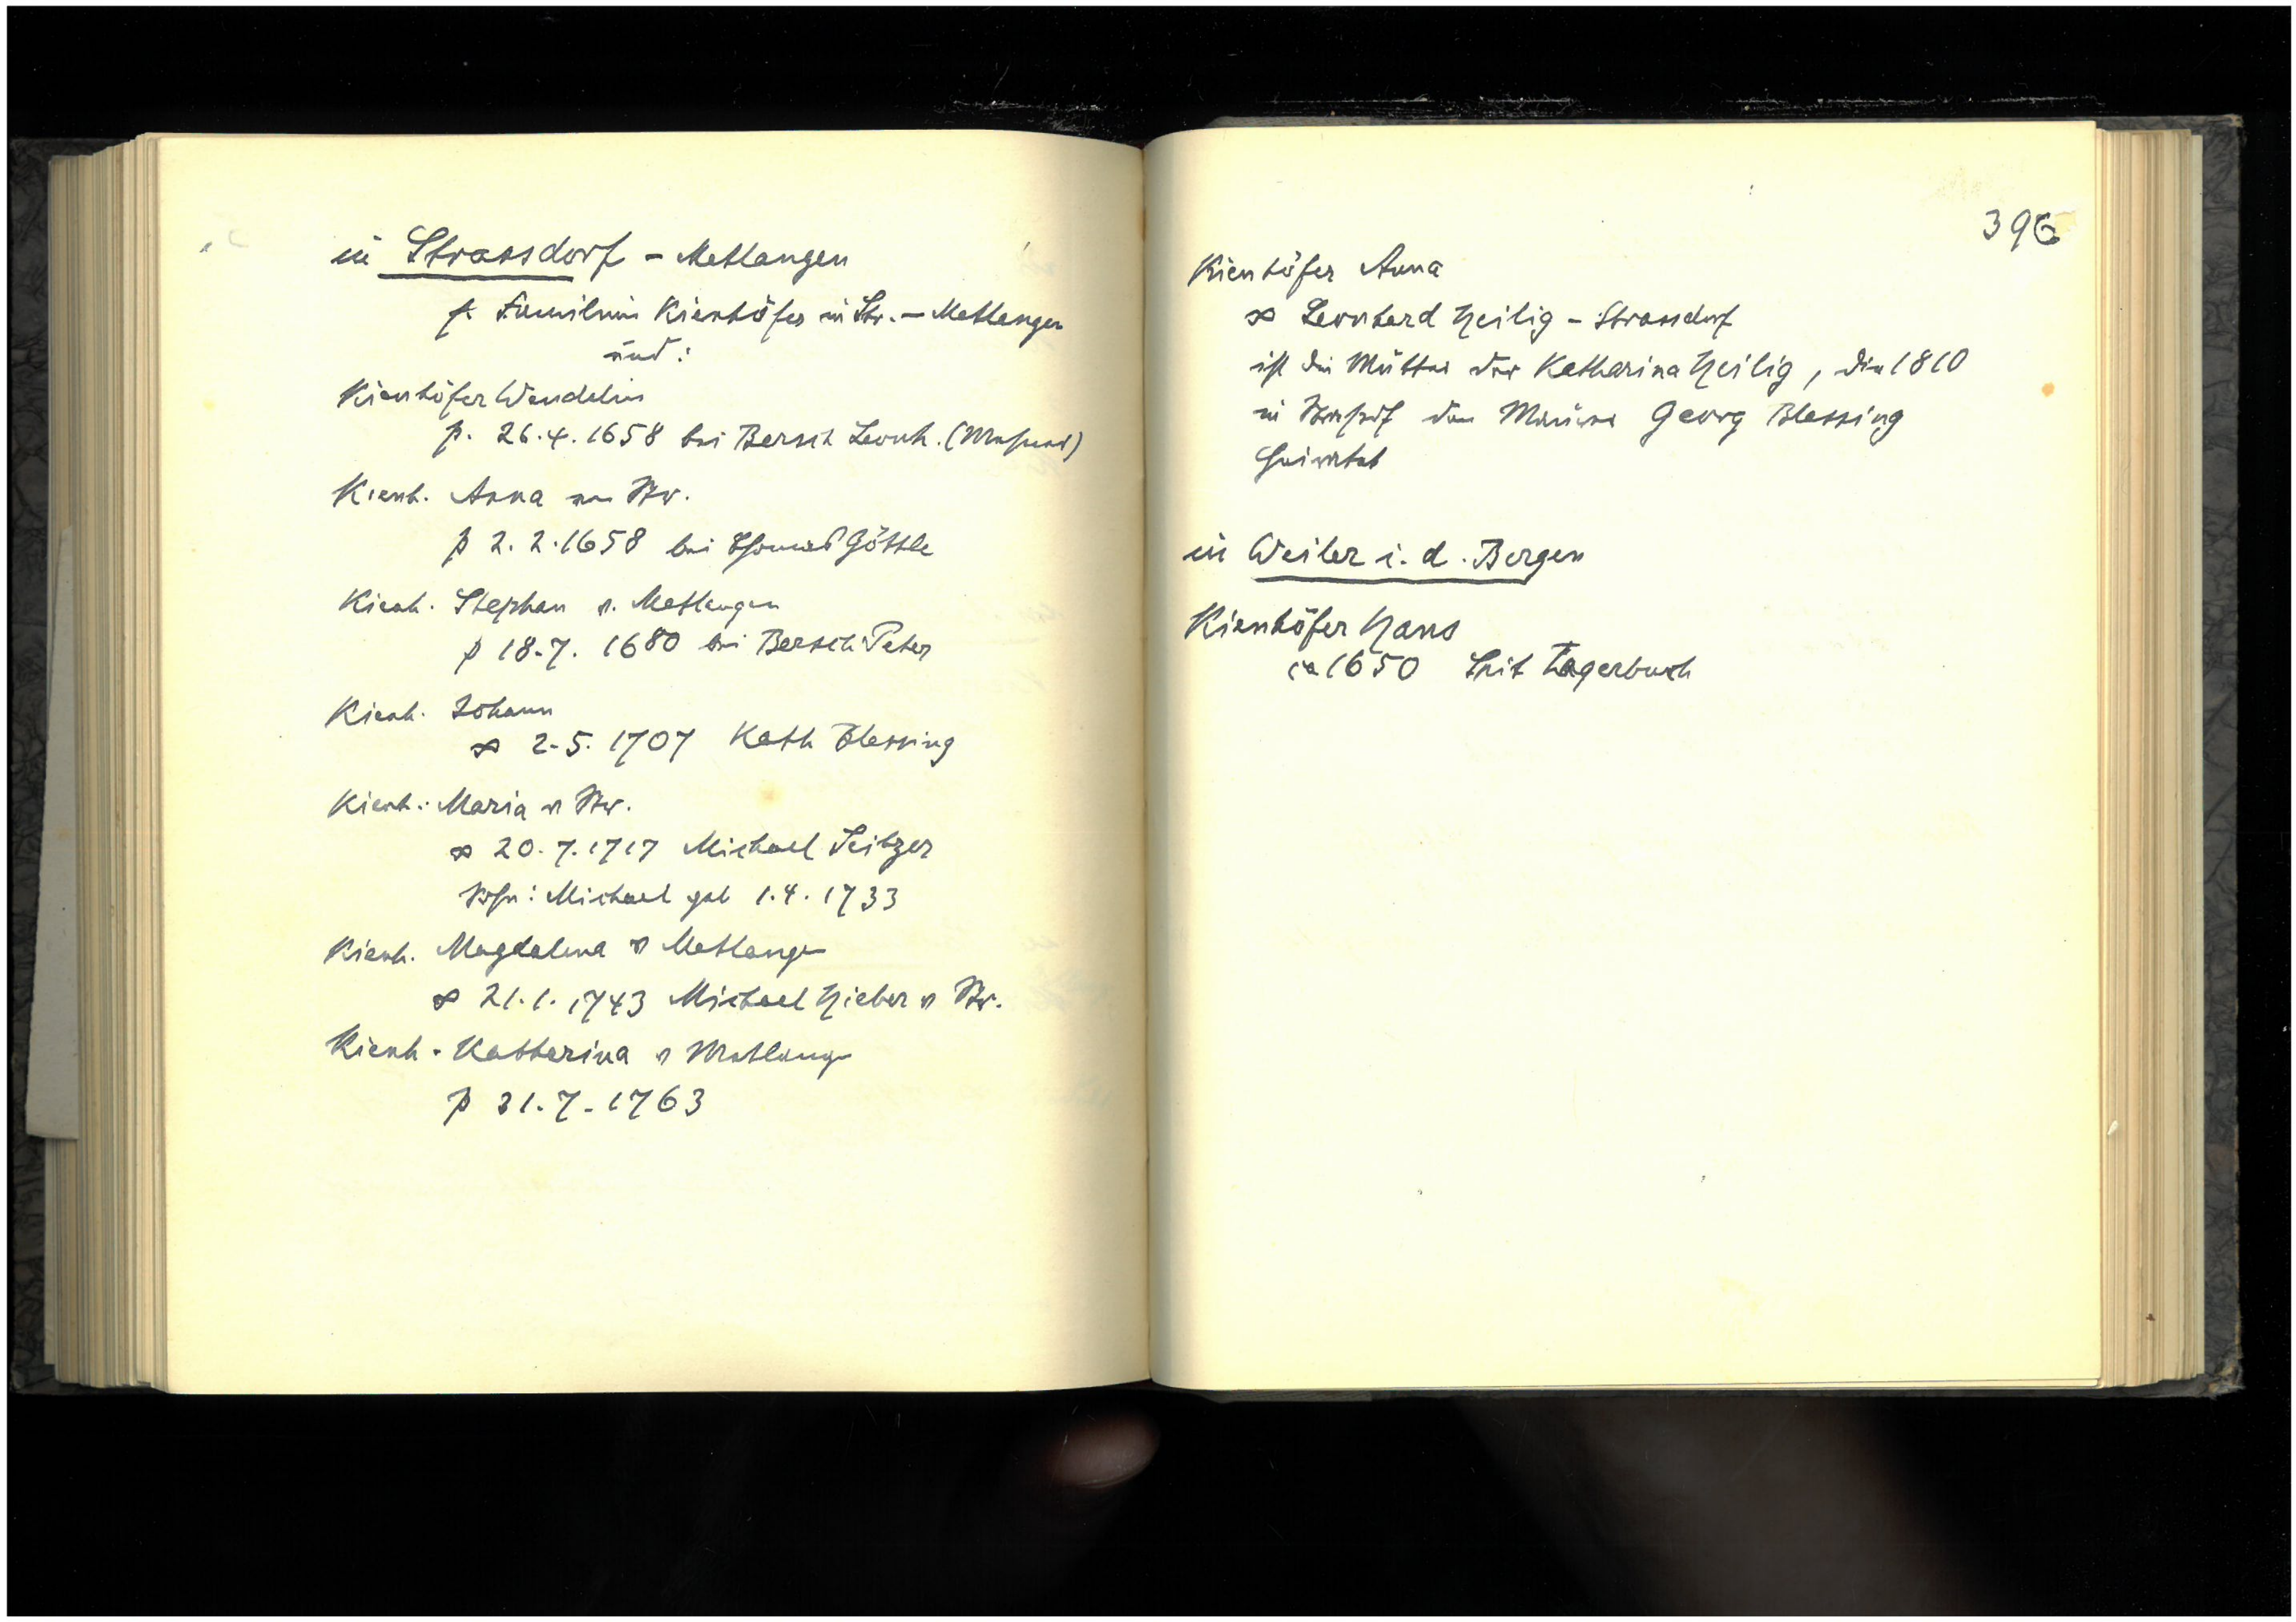 in Strassdorf - Metlangen
s. Familien Kienhöfer in Str. - Metlangen
und:
Kienhöfer Wendelin
p. 26.4.1658 bei Bersch Leonh.
Kienh. Anna von Str.
p 2.2.1658 bei Thomas Göttle
Kienh. Stephan v. Metlangen
p 18.7.1680 bei Bersch Peter
Kienh. Johann
∞ 2.5.1707 Kath Blessing
Kienh. Maria v Str.
∞ 20.7.1717 Michael Seitzer
Sohn: Michael geb 1.4.1733
Kienh. Magdalena v Metlangen
∞ 21.1.1743 Michael Hieber v Str.
Kienh. Katharina v Metlangen
p 31.7.1763
396
Kienhöfer Anna
∞ Leonhard Heilig - Strassdorf
ist die Mutter der Katharina Heilig, die 1810
in Strassdf den Georg Blessing
heiratet
in Weiler i. d. Bergen
Kienhöfer Hans
ca 1650 Lagerbuch